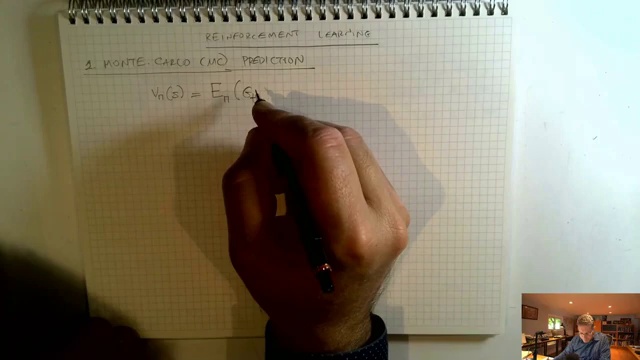 REINFORCEMENT LEARNING
1 MONTE-CARLO (MC) PREDICTION
Vπ(s) = Eπ(G